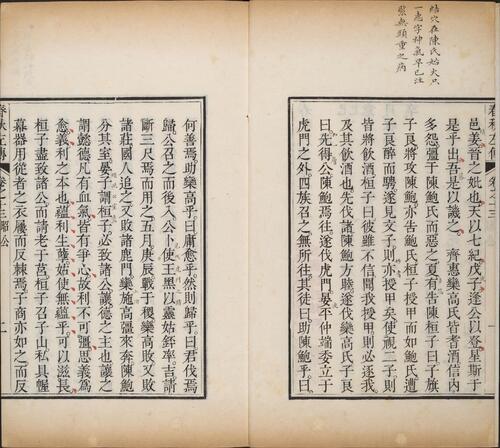 結穴在陳氏始大只
一志字神氣早已注
緊無頭重之病
春秋左傳
卷之十三
邑姜晉之妣也天以七紀戊子逢公以登星斯于
是乎出吾是以譏之　齊惠欒高氏皆耆酒信內
多怨彊于陳鮑氏而惡之夏有告陳桓子曰子旗
子良將攻陳鮑亦告鮑氏桓子授甲而如鮑氏遭
子良醉而騁遂見文子則亦授甲矣使視二子則
皆將飲酒桓子曰彼雖不信聞我授甲則必逐我
及其飲酒也先伐諸陳鮑方睦遂伐欒高氏子良
曰先得公陳鮑焉往遂伐虎門晏平仲端委立于
虎門之外四族召之無所往其徒曰助陳鮑乎曰
何善焉助欒高乎曰庸愈乎然則歸乎曰君伐焉
歸公召之而後入公卜使王黑以靈姑銔率吉請
斷三尺焉而用之五月庚辰戰于稷欒高敗又敗
諸莊國人追之又敗諸鹿門欒施高彊來奔陳鮑
分其室晏子謂桓子必致諸公讓德之主也讓之
謂懿德凡有血氣皆有爭心故利不可彊思義為
愈義利之本也蘊利生孽姑使無蘊乎可以滋長
桓子盡致諸公而請老于莒桓子召子山私具幄
幕器用從者之衣屨而反棘焉子商亦如之而反
春秋左傳
卷之十三昭公
二